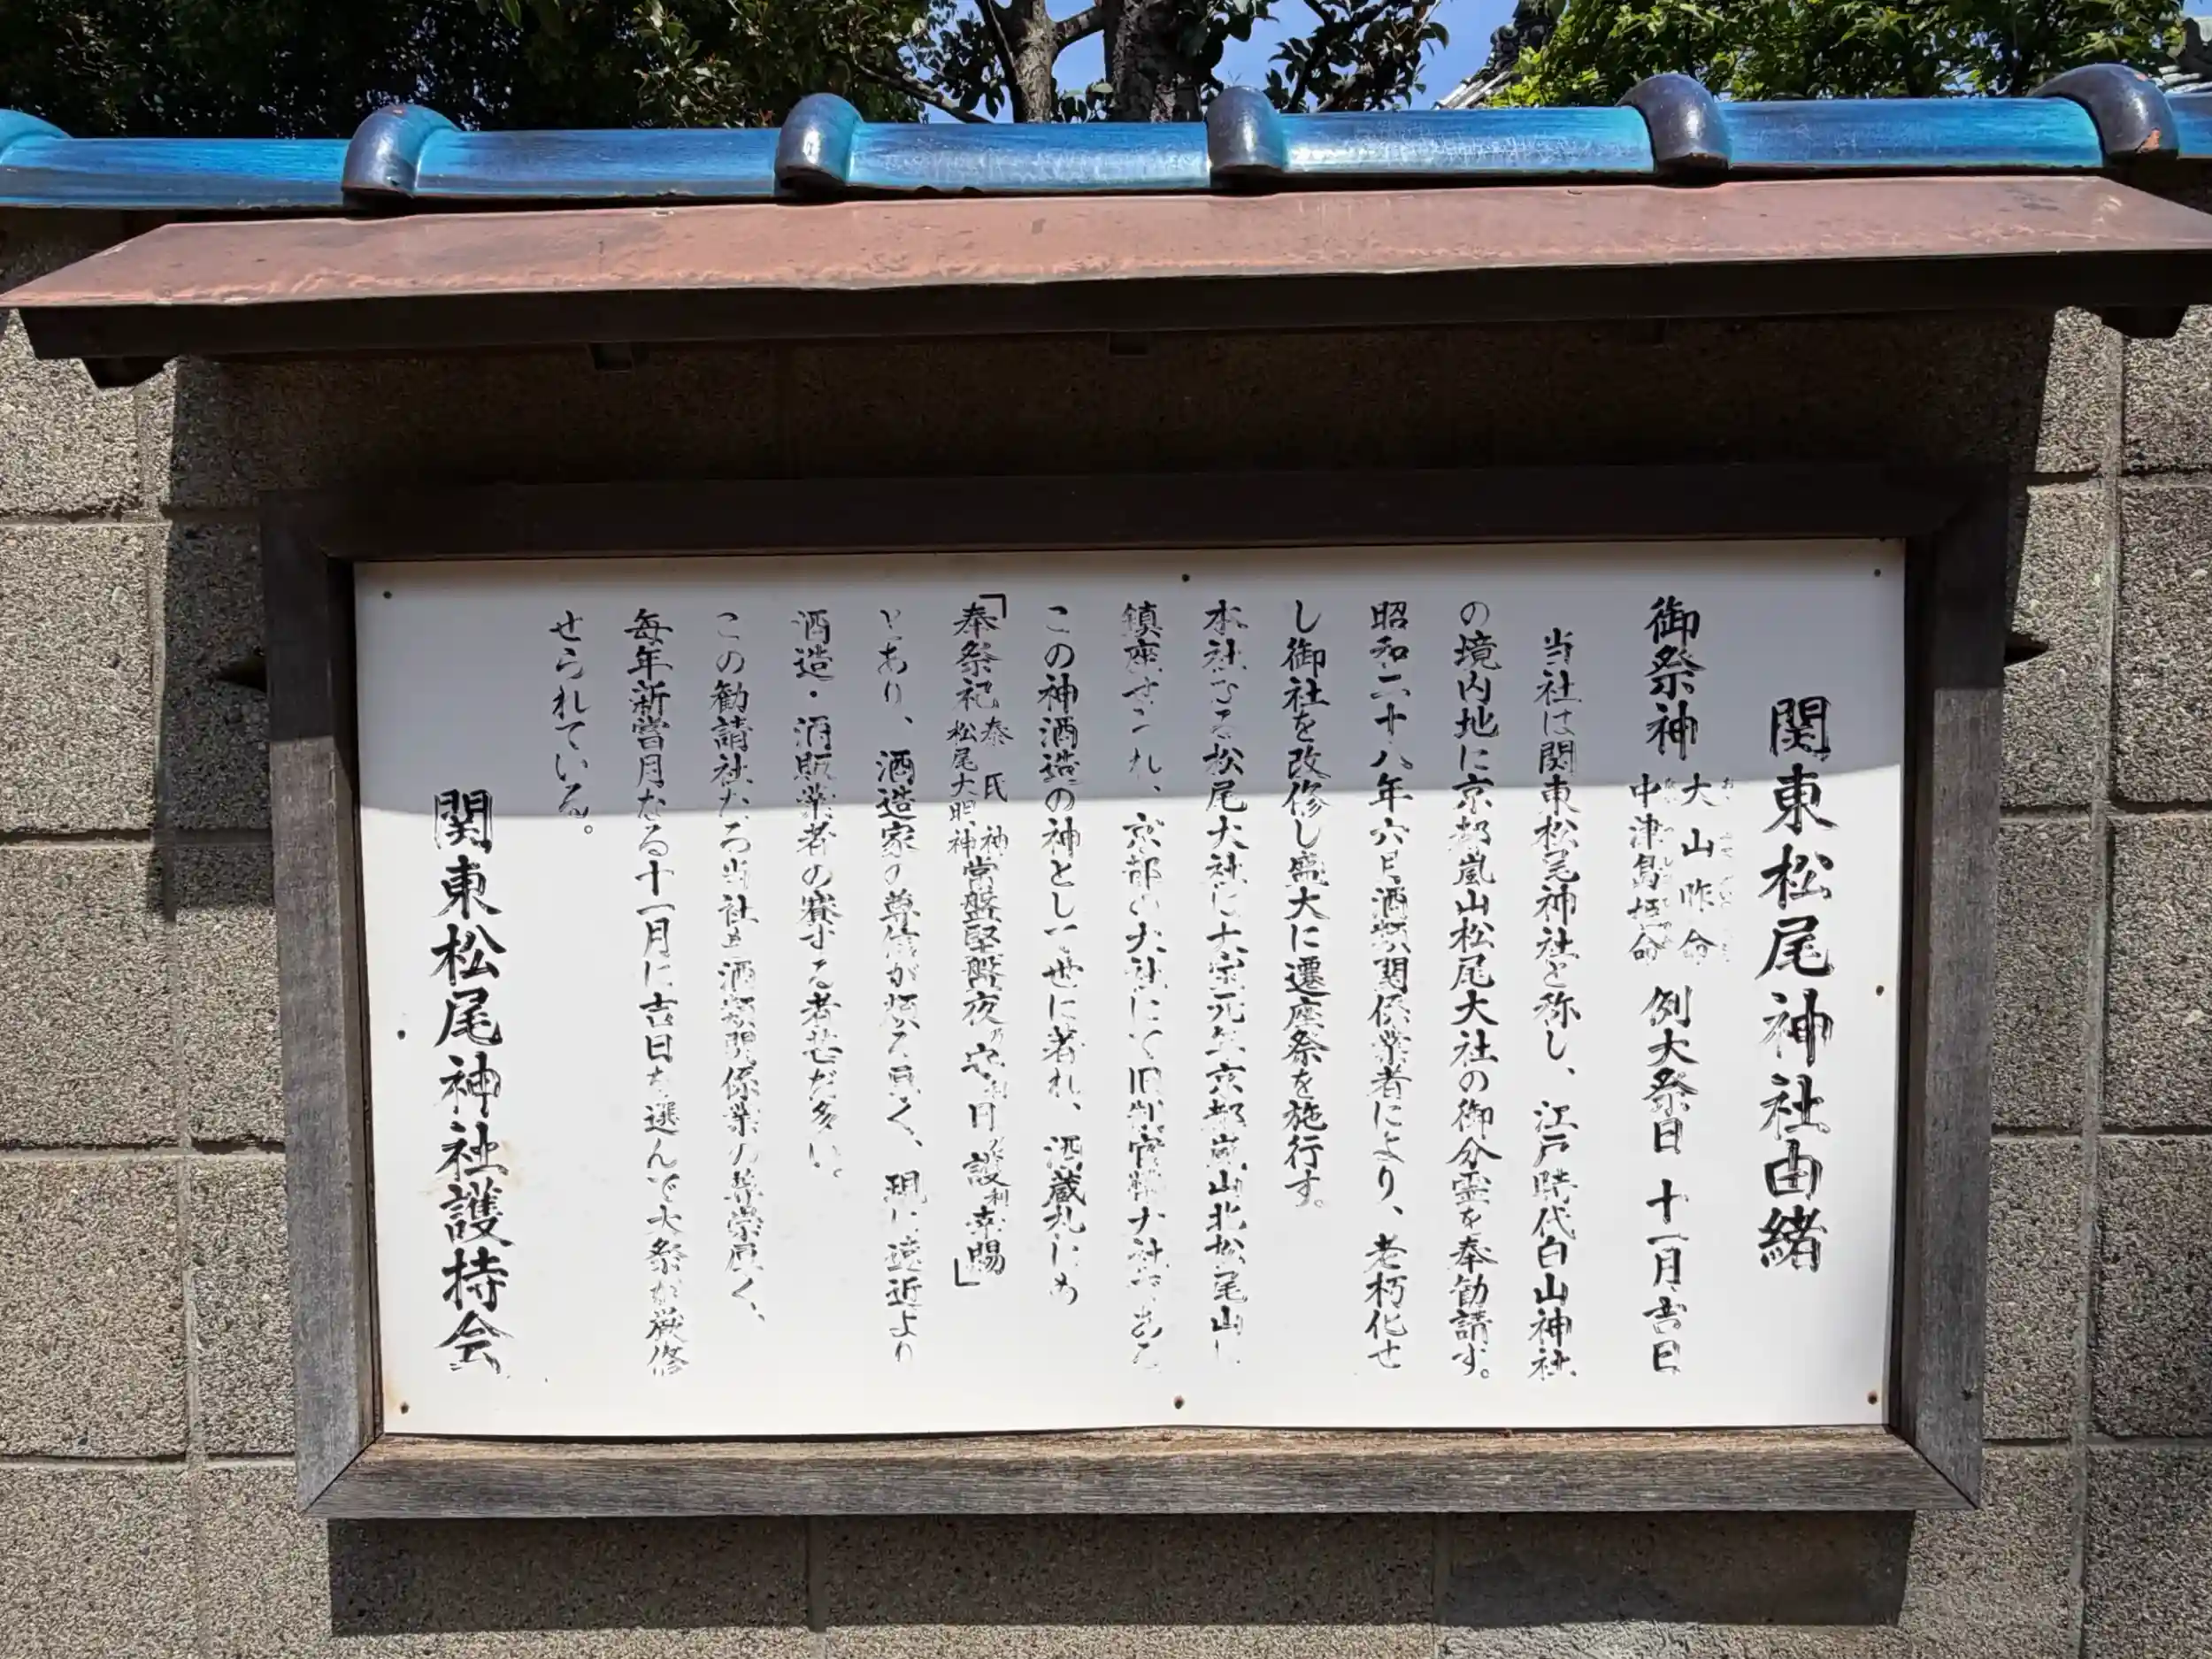 関東松尾神社由緒
御祭神 大山咋命 中津島姫命 例大祭日 十一月吉日
当社は関東松尾神社と称し、江戸時代白山神社
の境内地に京都嵐山松尾大社の御分霊を奉勧請す。
昭和二十八年六月酒類関係業者により、老朽化せ
し御社を改修し盛大に遷座祭を施行す。
本社なる松尾大社は大宝元年京都嵐山北松尾山に
鎮座せられ、京都の大社にて旧制官幣大社である
この神酒造の神として世に著れ、酒蔵札にも
「奉祭祀 秦氏神 松尾大明神 常盤堅盤夜乃守日 護利幸賜」
とあり、酒造家の尊信が頗る厚く、現に遠近より
酒造・酒販業者の賽する者甚だ多い。
この勧請社たる当社も酒類関係業の尊崇厚く、
毎年新嘗月なる十一月に吉日を選んで大祭が厳修
せられている。
関東松尾神社護持会